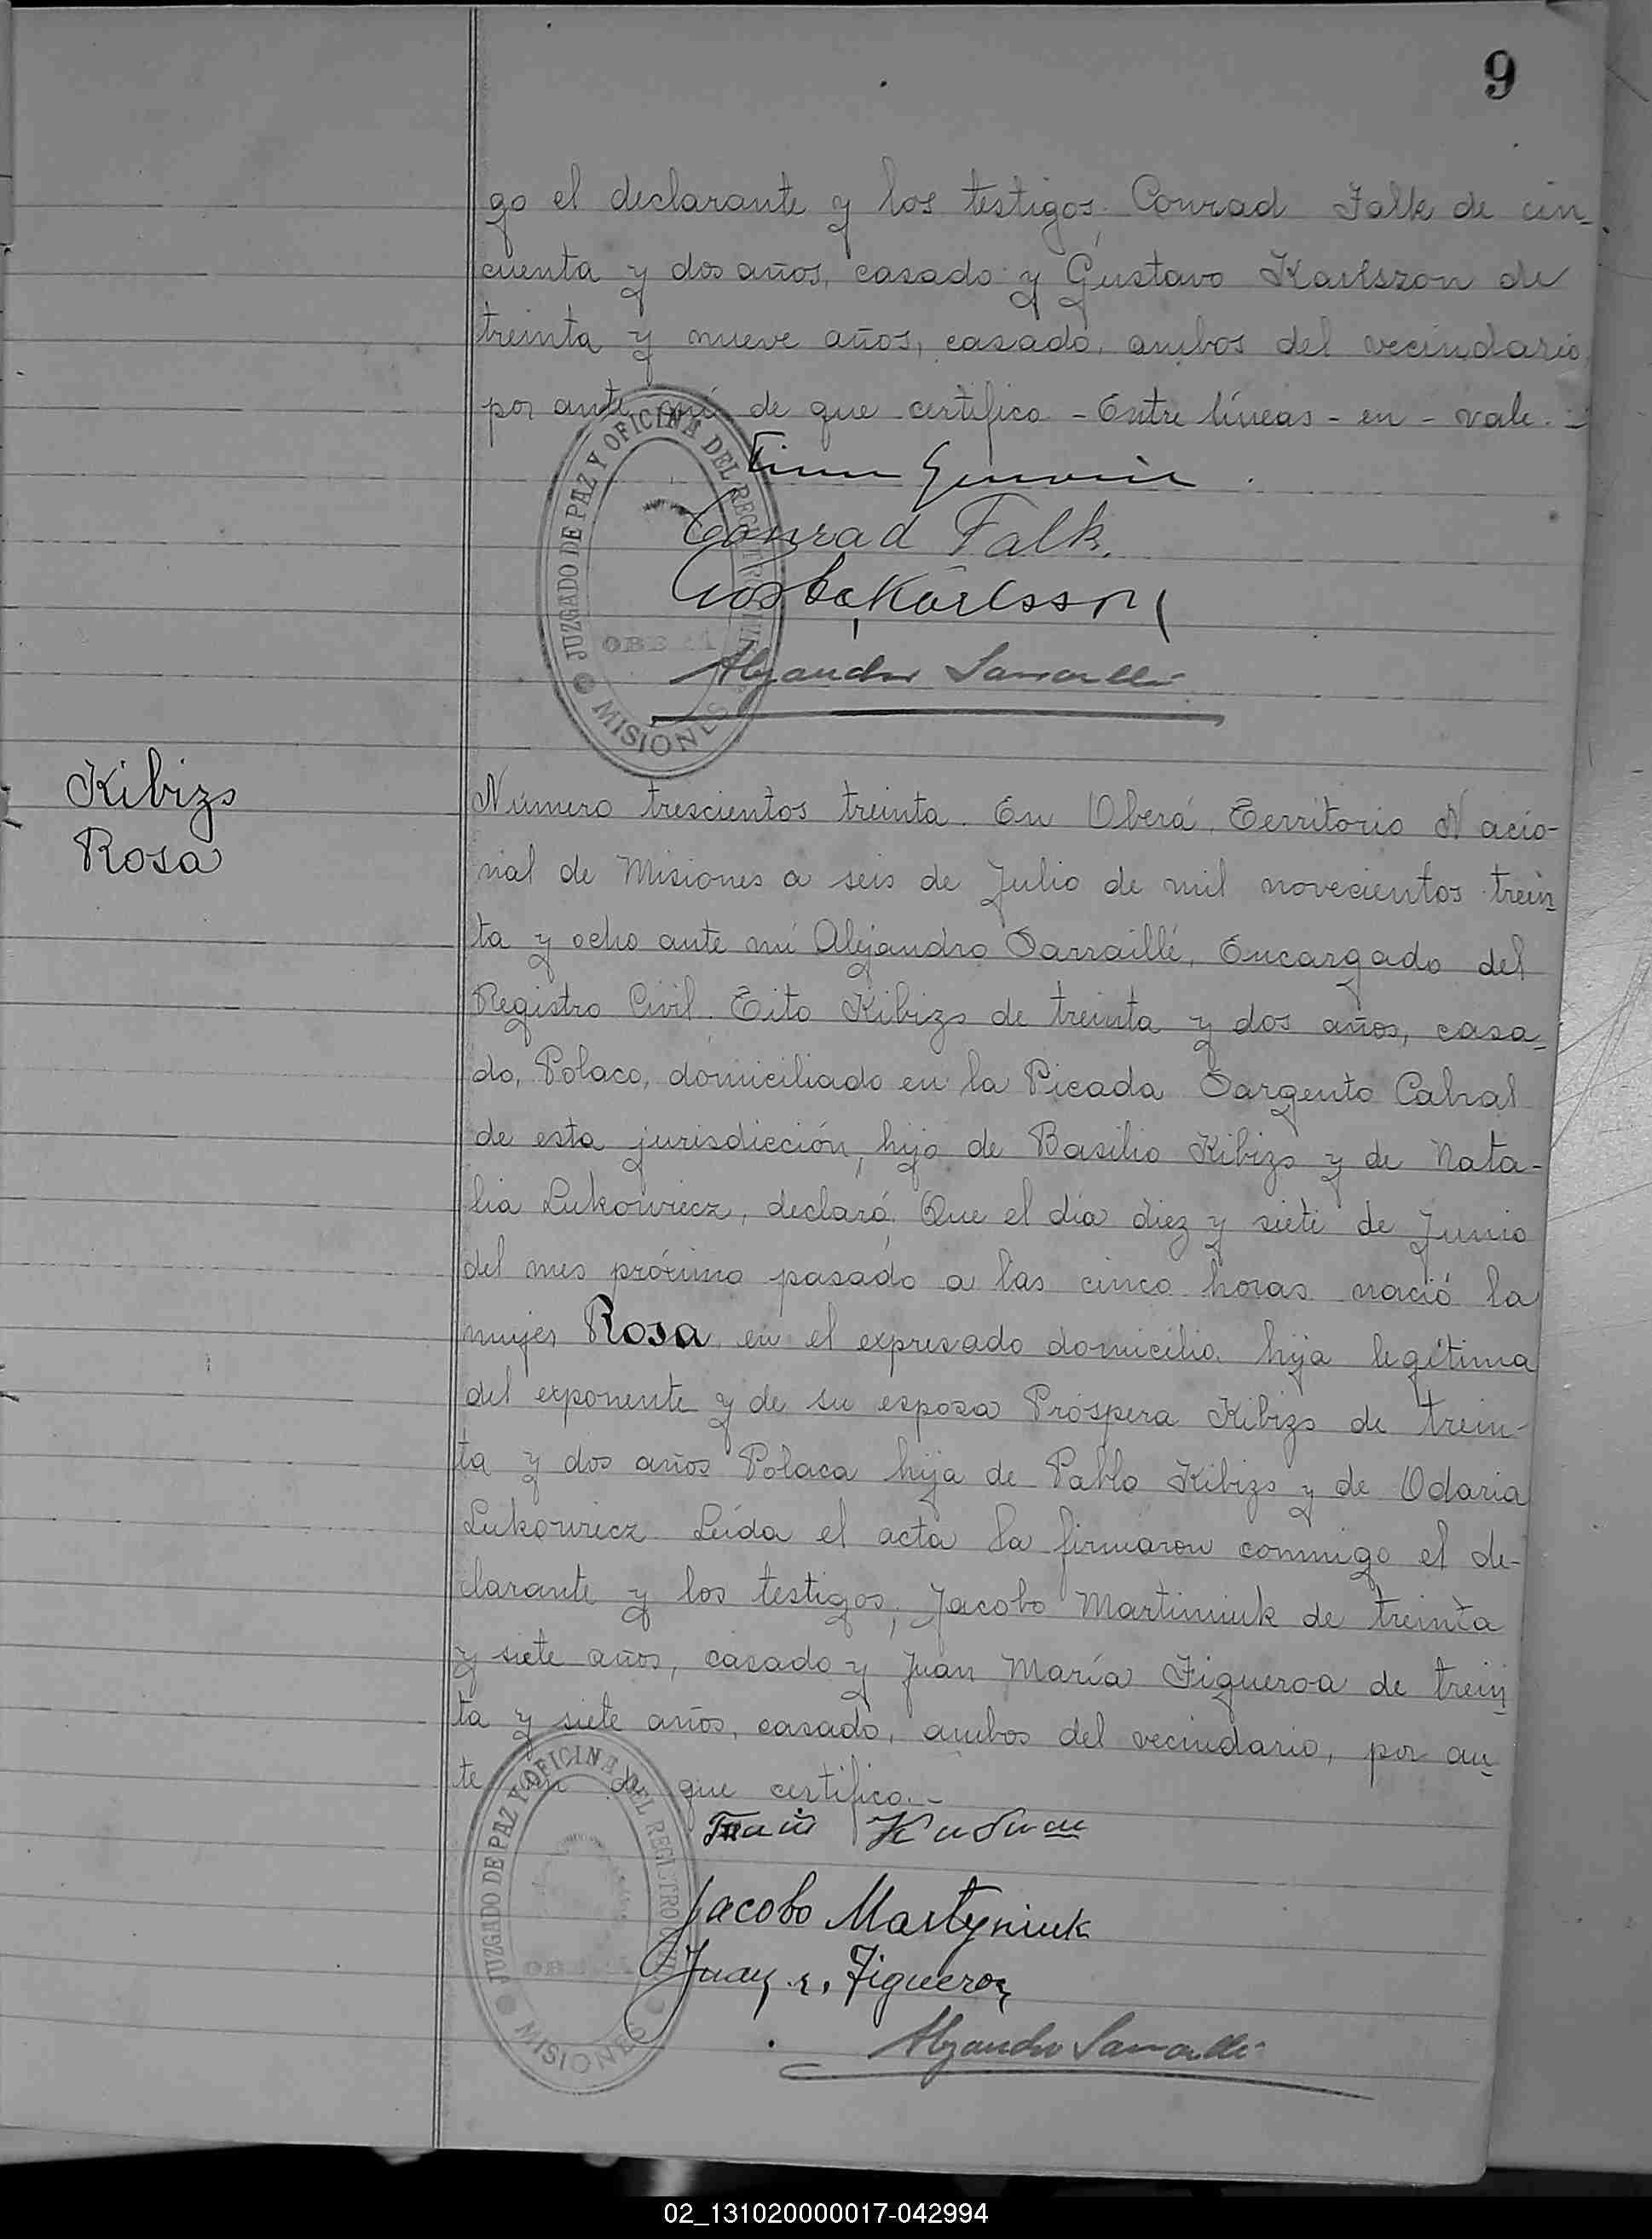 9
go el declarante y los testigos, Conrad Falk de cin-
cuenta y dos años, casado y Gustavo Karlszon de
treinta y nueve años, casado, ambos del vecindario,
por ante mí de que certifico - Entre líneas - en - vale. -
JUZGADO DE PAZ Y OFICINA DEL REGISTRO
OBERA
MISIONES
Conrad Falk.
Gösta Karlsson
Alejandro Sarraillé
Kibizs
Rosa
Número trescientos treinta. En Oberá, Territorio Nacio-
nal de Misiones a seis de Julio de mil novecientos trein
ta y ocho ante mí Alejandro Sarraillé, Encargado del
Registro Civil. Tito Kibizs de treinta y dos años, casa-
do, Polaco, domiciliado en la Picada Sargento Cabral
de esta jurisdicción, hijo de Basilio Kibizs y de Nata-
lia Lukowiecz, declaró, Que el día diez y siete de Junio
del mes próximo pasado a las cinco horas nació la
mujer Rosa en el expresado domicilio, hija legítima
del exponente y de su esposa Próspera Kibizs de trein-
ta y dos años Polaca hija de Pablo Kibizs y de Odaria
Lukowiecz Leída el acta la firmaron conmigo el de-
clarante y los testigos, Jacobo Martiniuk de treinta
y siete años, casado y Juan María Figueroa de trein
ta y siete años, casado, ambos del vecindario, por an
te mí de que certifico. -
JUZGADO DE PAZ Y OFICINA DEL REGISTRO
MISIONES
Jacobo Martyniuk
Juan M. Figueroa
Alejandro Sarraillé
02_131020000017-042994